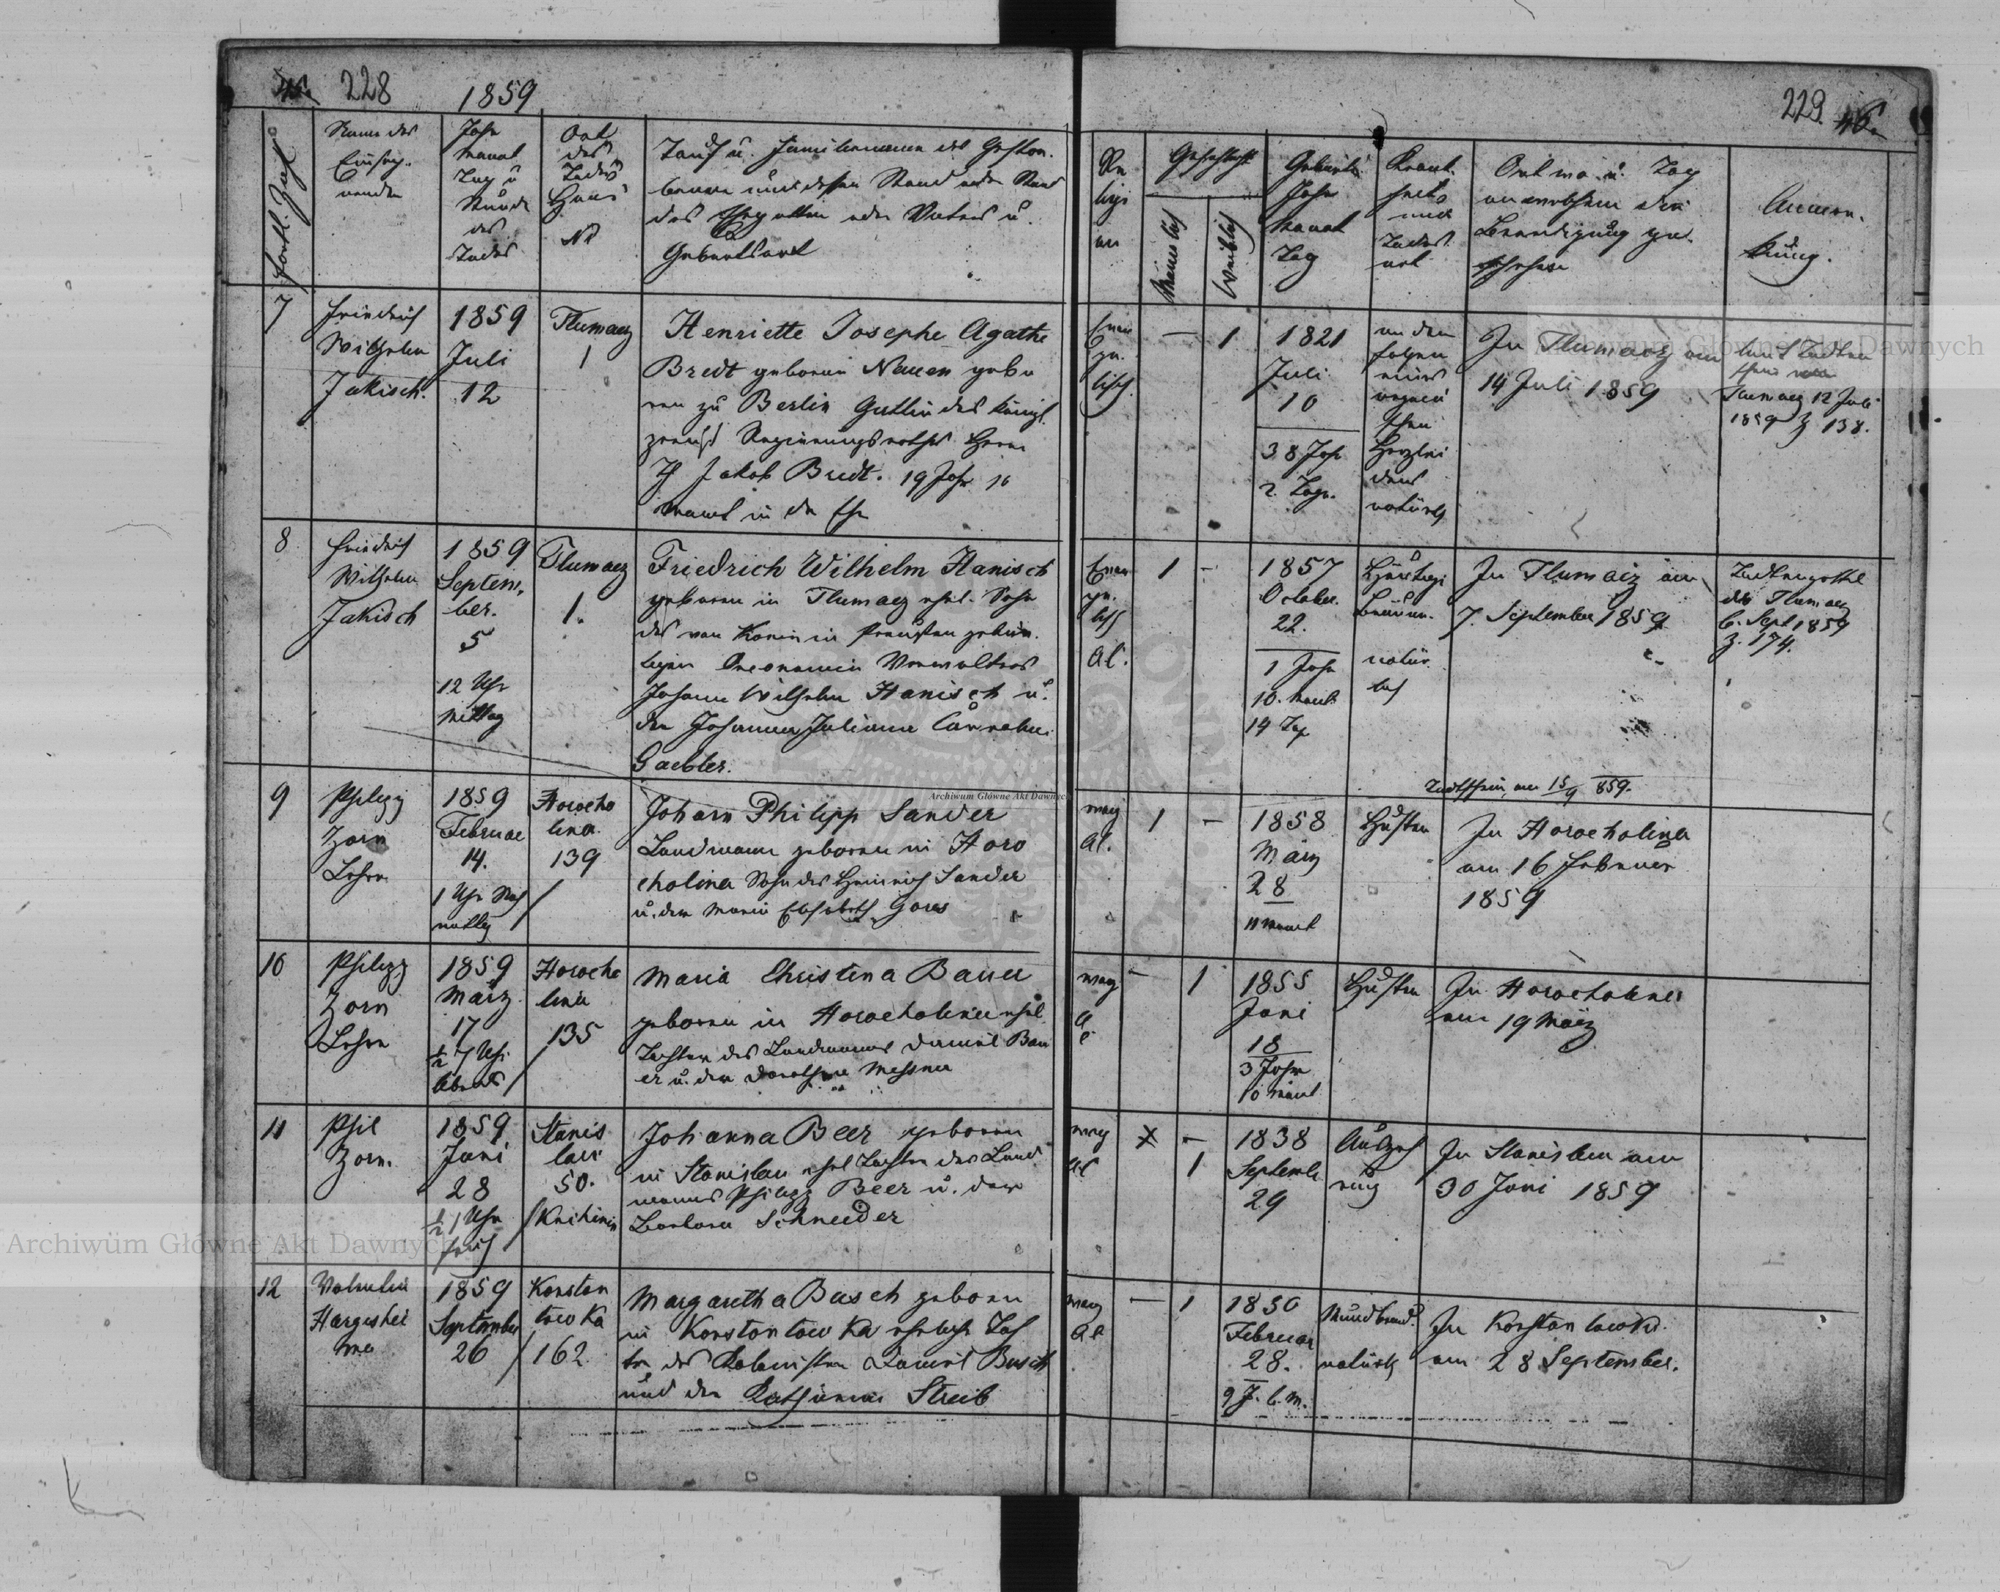 228
1859
229.
Fortl. Zahl
Name des
Einseg-
nenden
Jahr
Monat
Tag u
Stunde
des
Todes
Ort
des
Todes
Haus
No
Tauf u. Familienname des Gestor-
benen und dessen Stand oder Stand
des Ehegatten oder Vaters u.
Geburtsort
Re
ligi
on
Geschlecht
Männlich
Weiblich
Geburts
Jahr
Monat
Tag
Krank-
heit
und
Todes
art
Ort wo u. Tag
an welchem die
Beerdigung ge-
schehen
Anmer-
kung.
7
Friedrich
Wilhelm
Jakisch.
1859
Juli
12
Tlumacz
1
Henriette Josephe Agathe
Bredt geborene Nauen gebo
ren zu Berlin Gattin des königl.
preuß Regierungsrathes Herrn
Jakob Bredt. 19 Jahr
Monat in der Ehe
Evan
ge
lisch.
—
1
1821
Juli
10
38 Jahr
2. Tage.
an den
Folgen
eines
organi
schen
Herzlei
dens
natürlich
In Tlumacz am
14 Juli 1859
Tlumacz 12 Juli
1859 Z 138.
8
Friedrich
Wilhelm
Jakisch
1859
Septem-
ber.
5
12 Uhr
Mittag
Tlumacz
1.
Friedrich Wilhelm Hanisch
geboren in Tlumacz ehel. Sohn
des von Konin in Preußen gebür-
tigen Oeconomie Verwalters
Johann Wilhelm Hanisch u.
der Johanna Juliana
Gaebler.
Evan
ge.
lisch
AC.
1
-
1857
October.
22.
1 Jahr
10. Monat
14 Tag
Bräune.
natür
lich
In Tlumacz am
7. September 1859
Tlumacz
6. Sept 1859
Z. 174.
Todtschein am 15/9 859.
9
Philipp
Zorn
Lehrer
1859
Februar
14.
1 Uhr Nach
mittag
Horocho
lina.
139
Johann Philipp Sander
Landmann geboren in Horo
cholina Sohn des Heinrich Sander
u. der Maria Elisabeth
evang
AC.
1
-
1858
März
28
11 Monat
Husten
In Horocholina
am 16 Februar
1859
10
Philipp
Zorn
Lehrer
1859
März
17
1/2 7 Uhr
Abends
Horocho
lina
135
Maria Christina Bauer
geboren in Horocholina ehel
Tochter des Landmanns Daniel Bau
er u. der Dorothea Messner
evang
A
C
—
1
1855
Juni
18
3 Jahr
10 Monat
Husten
In Horocholina
am 19 März
11
Phil
Zorn.
1859
Juni
28
1/2 1 Uhr
früh
Stanis
lau
50.
Knihinin
Johanna Beer geboren
in Stanislau ehel Tochter des Land
manns Philipp Beer u. der
Barbara Schneider
evang
AC
x
-
1
1838
Septemb
29
Auszeh
rung
In Stanislau am
30 Juni 1859
12
Valentin
Hargeshei
mer
1859
September
26
Konstan
towka
162
Margaretha Busch geboren
in Konstantowka eheliche Toch
ter des Kolonisten Daniel Busch
und der Katharina Streib
evang
AC
—
1
1850
Februar
28.
9 J. 6. M.
Mundbrand.
natürlich
In Konstantowka.
am 28 September.
Archiwum Główne Akt Dawnych
Archiwüm Główne Akt Dawnych
Archiwum Główne Akt Dawnych